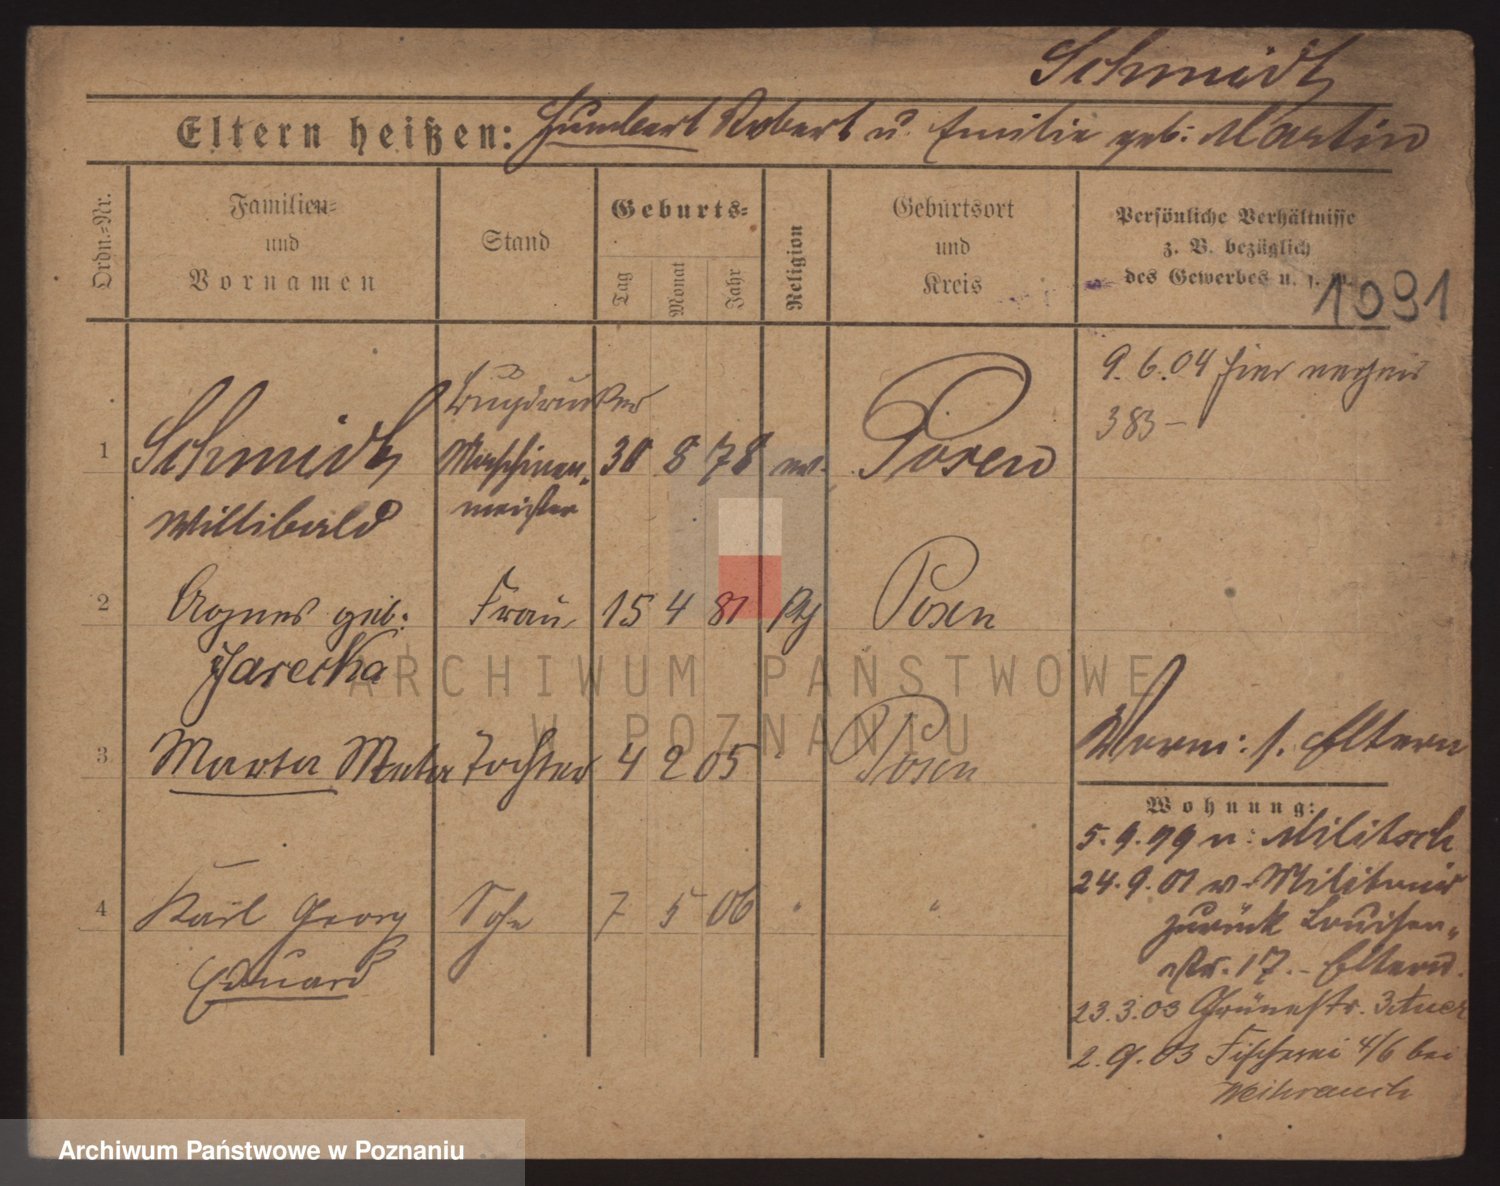 Schmidt
Eltern heißen: Humbert Robert u. Emilie geb: Martin
Ordn.-Nr.
Familien-
und
Vornamen
Stand
Geburts-
Tag
Monat
Jahr
Religion
Geburtsort
und
Kreis
Persönliche Verhältnisse
z. B. bezüglich
des Gewerbes u. s. w.
1091
9.6.04 hier
383-
Buchdrucker
1 Schmidt Maschinen- 30 8 78 ev. Posen
Willibald meister
2 Agnes geb: Frau 15 4 81 Posen
Jarecka
3 Marta Meta Tochter 4 2 05 " Posen
4 Karl Georg Sohn 7 5 06 " "
Eduard
Vorm: s. Eltern
Wohnung:
5.9.99 n: Militsch
24.9.01 v. Militair
zurück Louisen-
str. 17. - Eltern.
23.3.03 Grünestr. 3
2.9.03 Fischerei 4/6 bei
Weihrauch
ARCHIWUM PAŃSTWOWE
W POZNANIU
Archiwum Państwowe w Poznaniu